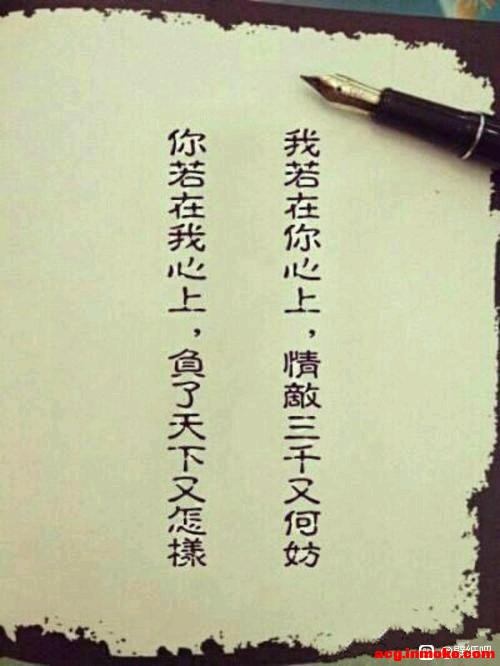 我若在你心上，情敵三千又何妨
你若在我心上，負了天下又怎樣
acg.inmoke.com